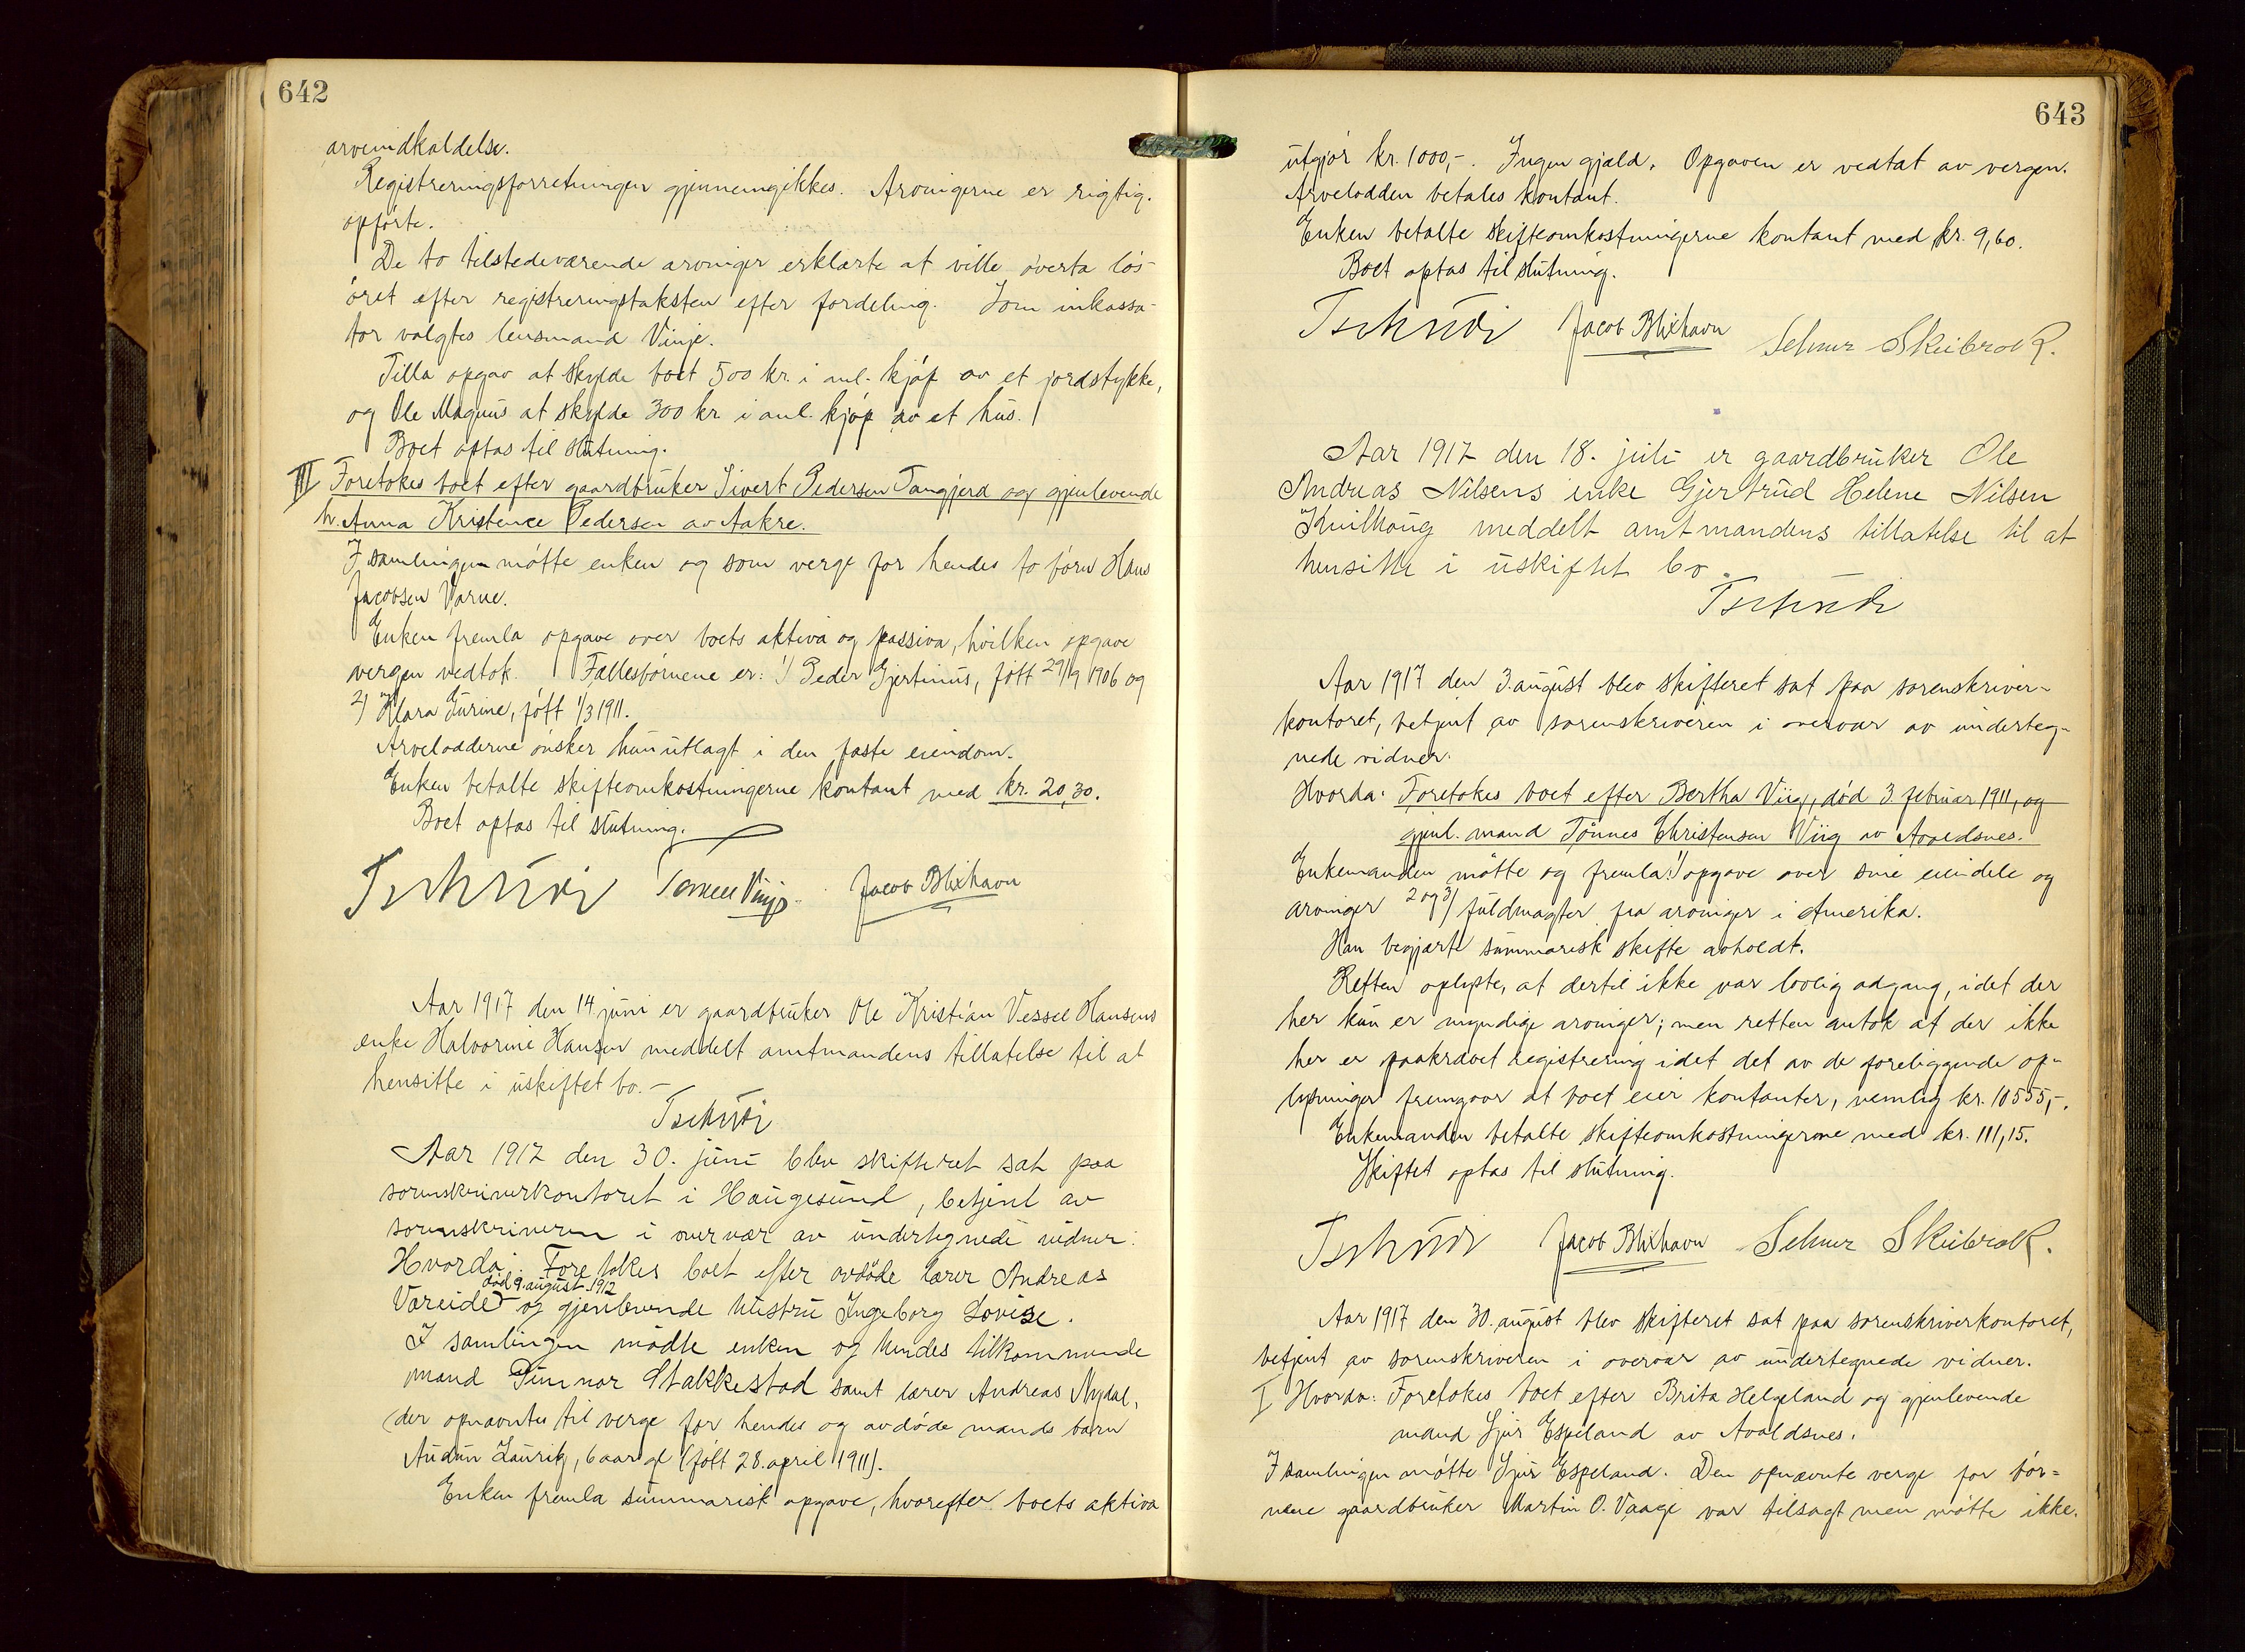 642
arveindkaldelse.
Registreringsforretningen gjennemgikkes. Arvingerne er rigtig
opførte.
De to tilstedeværende arvinger erklærte at ville overta løs-
øret efter registreringstaksten efter fordeling. Som inkassa-
tor valgtes lensmand Vinje.
Tilla opgav at skylde boet 500 kr. i anl. kjøp av et jordstykke,
og Ole Magnus at skylde 300 kr i anl. kjøp av et hus.
Boet optas til slutning.
III Foretokes boet efter gaardbruker Sivert Pedersen Tangjerd og gjenlevende
h. Anna Kristence Pedersen av Aakre.
I samlingen møtte enken og som verge for hendes to børn Hans
Jacobsen Varne.
Enken fremla opgave over boets aktiva og passiva, hvilken opgave
vergen vedtok. Fællesbørnene er: 1/ Peder Gjertinius, født 29/9 1906 og
2) Klara Gurine, født 1/3 1911.
Arvelodderne ønsker hun utlagt i den faste eiendom.
Enken betalte skifteomkostningerne kontant med kr. 20,30.
Boet optas til slutning.
Tschudi Tormod Vinje. Jacob Blixhavn
Aar 1917 den 14 juni er gaardbruker Ole Kristian Vessel Hansens
enke Halvorine Hansen meddelt amtmandens tillatelse til at
hensitte i uskiftet bo.-
Tschudi
Aar 1917 den 30. juni blev skifteret sat paa
sorenskriverkontoret i Haugesund, betjent av
sorenskriveren i overvær av undertegnede vidner:
Hvorda: Foretokes boet efter avdøde lærer Andreas
død 9. august 1912
Vareide og gjenlevende hustru Ingeborg Lovise.
I samlingen mødte enken og hendes tilkommende
mand Gunnar Stakkestad samt lærer Andreas Nydal,
der opnævntes til verge for hendes og avdøde mands barn
Audun Lauritz, 6 aar gl (født 28. april 1911).
Enken fremla summarisk opgave, hvorefter boets aktiva
643
utgjør kr. 1000,-. Ingen gjæld. Opgaven er vedtat av vergen.
Arvelodden betales kontant.
Enken betalte skifteomkostningerne kontant med kr. 9,60.
Boet optas til slutning.
Tschudi Jacob Blixhavn Selmer Skeibrok.
Aar 1917 den 18. juli er gaardbruker Ole
Andreas Nilsens enke Gjertrud Helene Nilsen
Kvilhaug meddelt amtmandens tillatelse til at
hensitte i uskiftet bo.
Tschudi
Aar 1917 den 3. august blev skifteret sat paa sorenskriver-
kontoret, betjent av sorenskriveren i overvær av underteg-
nede vidner.
Hvorda: Foretokes boet efter Bertha Viig, død 3. februar 1911, og
gjenl. mand Tønnes Christensen Viig av Avaldsnes.
Enkemanden møtte og fremla 1) opgave over sine eiendele og
arvinger 2 og 3) fuldmagter fra arvinger i Amerika.
Han begjærte summarisk skifte avholdt.
Retten oplyste, at dertil ikke var lovlig adgang, idet der
her kun er myndige arvinger; men retten antok at der ikke
her er paakrævet registrering idet det av de foreliggende op-
lysninger fremgaar at boet eier kontanter, nemlig kr. 10555,-.
Enkemanden betalte skifteomkostningerne med kr. 111,15.
Skiftet optas til slutning.
Tschudi Jacob Blixhavn Selmer Skeibrok.
Aar 1917 den 30. august blev skifteret sat paa sorenskriverkontoret,
betjent av sorenskriveren i overvær av undertegnede vidner.
I Hvorda: Foretokes boet efter Brita Helgeland og gjenlevende
mand Sjur Espeland av Avaldsnes.
I samlingen møtte Sjur Espeland. Den opnævnte verge for bør=
nene gaardbruker Martin O. Vaage var tilsagt men møtte ikke.